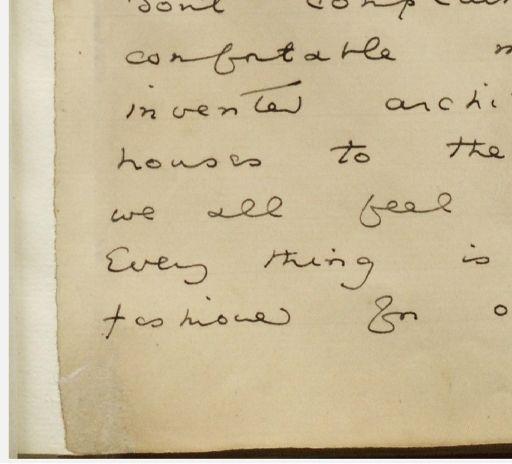 dont
comfortable
invented archi
houses to the
we all feel
Every thing is
fashioned for o